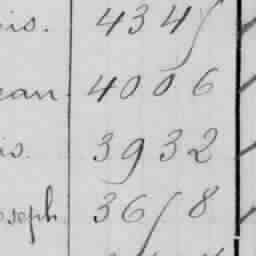 is. 4345
ean 4006
is. 3932
oseph 3658